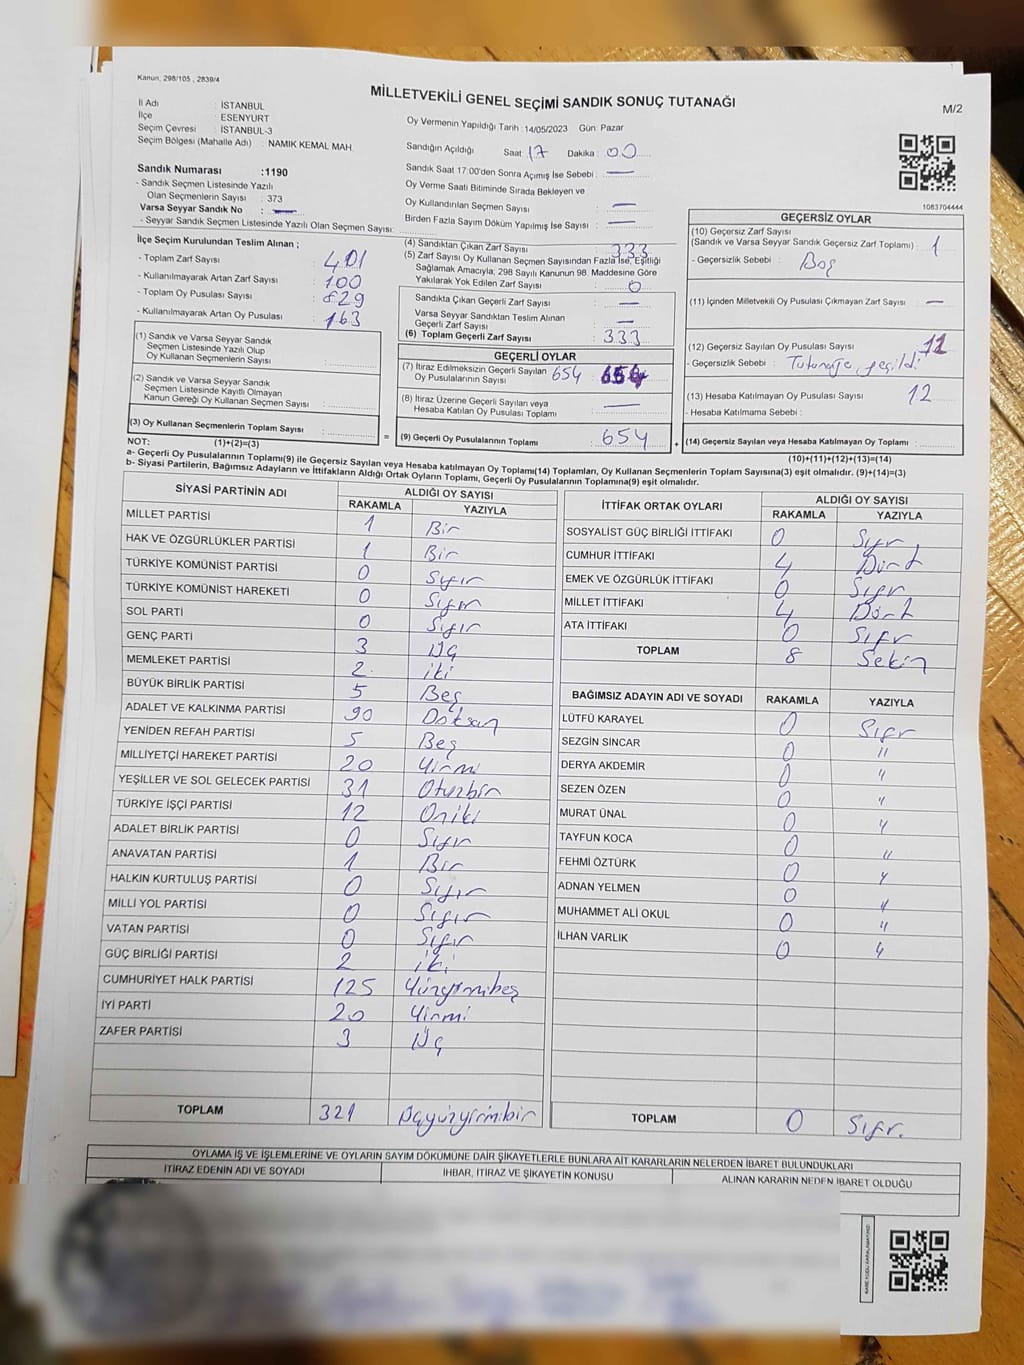 Kanun, 298/105 , 2839/4
MİLLETVEKİLİ GENEL SEÇİMİ SANDIK SONUÇ TUTANAĞI
M/2
İl Adı : İSTANBUL
İlçe : ESENYURT
Seçim Çevresi : İSTANBUL-3
Seçim Bölgesi (Mahalle Adı) : NAMIK KEMAL MAH.
Sandık Numarası :1190
- Sandık Seçmen Listesinde Yazılı
Olan Seçmenlerin Sayısı : 373
Varsa Seyyar Sandık No : —
- Seyyar Sandık Seçmen Listesinde Yazılı Olan Seçmen Sayısı:
Oy Vermenin Yapıldığı Tarih :14/05/2023 Gün: Pazar
Sandığın Açıldığı Saat : 17 Dakika : 00
Sandık Saat 17:00'den Sonra Açımış İse Sebebi : —
Oy Verme Saati Bitiminde Sırada Bekleyen ve
Oy Kullandırılan Seçmen Sayısı : —
Birden Fazla Sayım Döküm Yapılmış İse Sayısı : —
1083704444
İlçe Seçim Kurulundan Teslim Alınan ;
- Toplam Zarf Sayısı : 401
- Kullanılmayarak Artan Zarf Sayısı : 100
- Toplam Oy Pusulası Sayısı : 829
- Kullanılmayarak Artan Oy Pusulası : 163
(1) Sandık ve Varsa Seyyar Sandık
Seçmen Listesinde Yazılı Olup
Oy Kullanan Seçmenlerin Sayısı :
(2) Sandık ve Varsa Seyyar Sandık
Seçmen Listesinde Kayıtlı Olmayan
Kanun Gereği Oy Kullanan Seçmen Sayısı :
(3) Oy Kullanan Seçmenlerin Toplam Sayısı :
(4) Sandıktan Çıkan Zarf Sayısı : 333
(5) Zarf Sayısı Oy Kullanan Seçmen Sayısından Fazla İse, Eşitliği
Sağlamak Amacıyla, 298 Sayılı Kanunun 98. Maddesine Göre
Yakılarak Yok Edilen Zarf Sayısı : 0
Sandıkta Çıkan Geçerli Zarf Sayısı : —
Varsa Seyyar Sandıktan Teslim Alınan
Geçerli Zarf Sayısı : —
(6) Toplam Geçerli Zarf Sayısı : 333
GEÇERLİ OYLAR
(7) İtiraz Edilmeksizin Geçerli Sayılan
Oy Pusulalarının Sayısı : 654 654
(8) İtiraz Üzerine Geçerli Sayılan veya
Hesaba Katılan Oy Pusulası Toplamı : —
= (9) Geçerli Oy Pusulalarının Toplamı : 654 +
GEÇERSİZ OYLAR
(10) Geçersiz Zarf Sayısı
(Sandık ve Varsa Seyyar Sandık Geçersiz Zarf Toplamı) : 1
- Geçersizlik Sebebi : Boş
(11) İçinden Milletvekili Oy Pusulası Çıkmayan Zarf Sayısı : —
(12) Geçersiz Sayılan Oy Pusulası Sayısı : 12
- Geçersizlik Sebebi :
(13) Hesaba Katılmayan Oy Pusulası Sayısı : 12
- Hesaba Katılmama Sebebi :
(14) Geçersiz Sayılan veya Hesaba Katılmayan Oy Toplamı :
NOT: (1)+(2)=(3)
(10)+(11)+(12)+(13)=(14)
a- Geçerli Oy Pusulalarının Toplamı(9) ile Geçersiz Sayılan veya Hesaba katılmayan Oy Toplamı(14) Toplamları, Oy Kullanan Seçmenlerin Toplam Sayısına(3) eşit olmalıdır. (9)+(14)=(3)
b- Siyasi Partilerin, Bağımsız Adayların ve İttifakların Aldığı Ortak Oyların Toplamı, Geçerli Oy Pusulalarının Toplamına(9) eşit olmalıdır.
SİYASİ PARTİNİN ADI ALDIĞI OY SAYISI
RAKAMLA YAZIYLA
MİLLET PARTİSİ 1 Bir
HAK VE ÖZGÜRLÜKLER PARTİSİ 1 Bir
TÜRKİYE KOMÜNİST PARTİSİ 0 Sıfır
TÜRKİYE KOMÜNİST HAREKETİ 0 Sıfır
SOL PARTİ 0 Sıfır
GENÇ PARTİ 3 Üç
MEMLEKET PARTİSİ 2 iki
BÜYÜK BİRLİK PARTİSİ 5 Beş
ADALET VE KALKINMA PARTİSİ 90 Doksan
YENİDEN REFAH PARTİSİ 5 Beş
MİLLİYETÇİ HAREKET PARTİSİ 20 Yirmi
YEŞİLLER VE SOL GELECEK PARTİSİ 31 Otuzbir
TÜRKİYE İŞÇİ PARTİSİ 12 Oniki
ADALET BİRLİK PARTİSİ 0 Sıfır
ANAVATAN PARTİSİ 1 Bir
HALKIN KURTULUŞ PARTİSİ 0 Sıfır
MİLLİ YOL PARTİSİ 0 Sıfır
VATAN PARTİSİ 0 Sıfır
GÜÇ BİRLİĞİ PARTİSİ 2 iki
CUMHURİYET HALK PARTİSİ 125 Yüzyirmibeş
İYİ PARTİ 20 Yirmi
ZAFER PARTİSİ 3 Üç
TOPLAM 321 Üçyüzyirmibir
İTTİFAK ORTAK OYLARI ALDIĞI OY SAYISI
RAKAMLA YAZIYLA
SOSYALİST GÜÇ BİRLİĞİ İTTİFAKI 0 Sıfır
CUMHUR İTTİFAKI 4 Dört
EMEK VE ÖZGÜRLÜK İTTİFAKI 0 Sıfır
MİLLET İTTİFAKI 4 Dört
ATA İTTİFAKI 0 Sıfır
TOPLAM 8 Sekiz
BAĞIMSIZ ADAYIN ADI VE SOYADI RAKAMLA YAZIYLA
LÜTFÜ KARAYEL 0 Sıfır
SEZGİN SİNCAR 0 "
DERYA AKDEMİR 0 "
SEZEN ÖZEN 0 "
MURAT ÜNAL 0 "
TAYFUN KOCA 0 "
FEHMİ ÖZTÜRK 0 "
ADNAN YELMEN 0 "
MUHAMMET ALİ OKUL 0 "
İLHAN VARLIK 0 "
TOPLAM 0 Sıfır.
OYLAMA İŞ VE İŞLEMLERİNE VE OYLARIN SAYIM DÖKÜMÜNE DAİR ŞİKAYETLERLE BUNLARA AİT KARARLARIN NELERDEN İBARET BULUNDUKLARI
İTİRAZ EDENİN ADI VE SOYADI İHBAR, İTİRAZ VE ŞİKAYETİN KONUSU ALINAN KARARIN NEDEN İBARET OLDUĞU